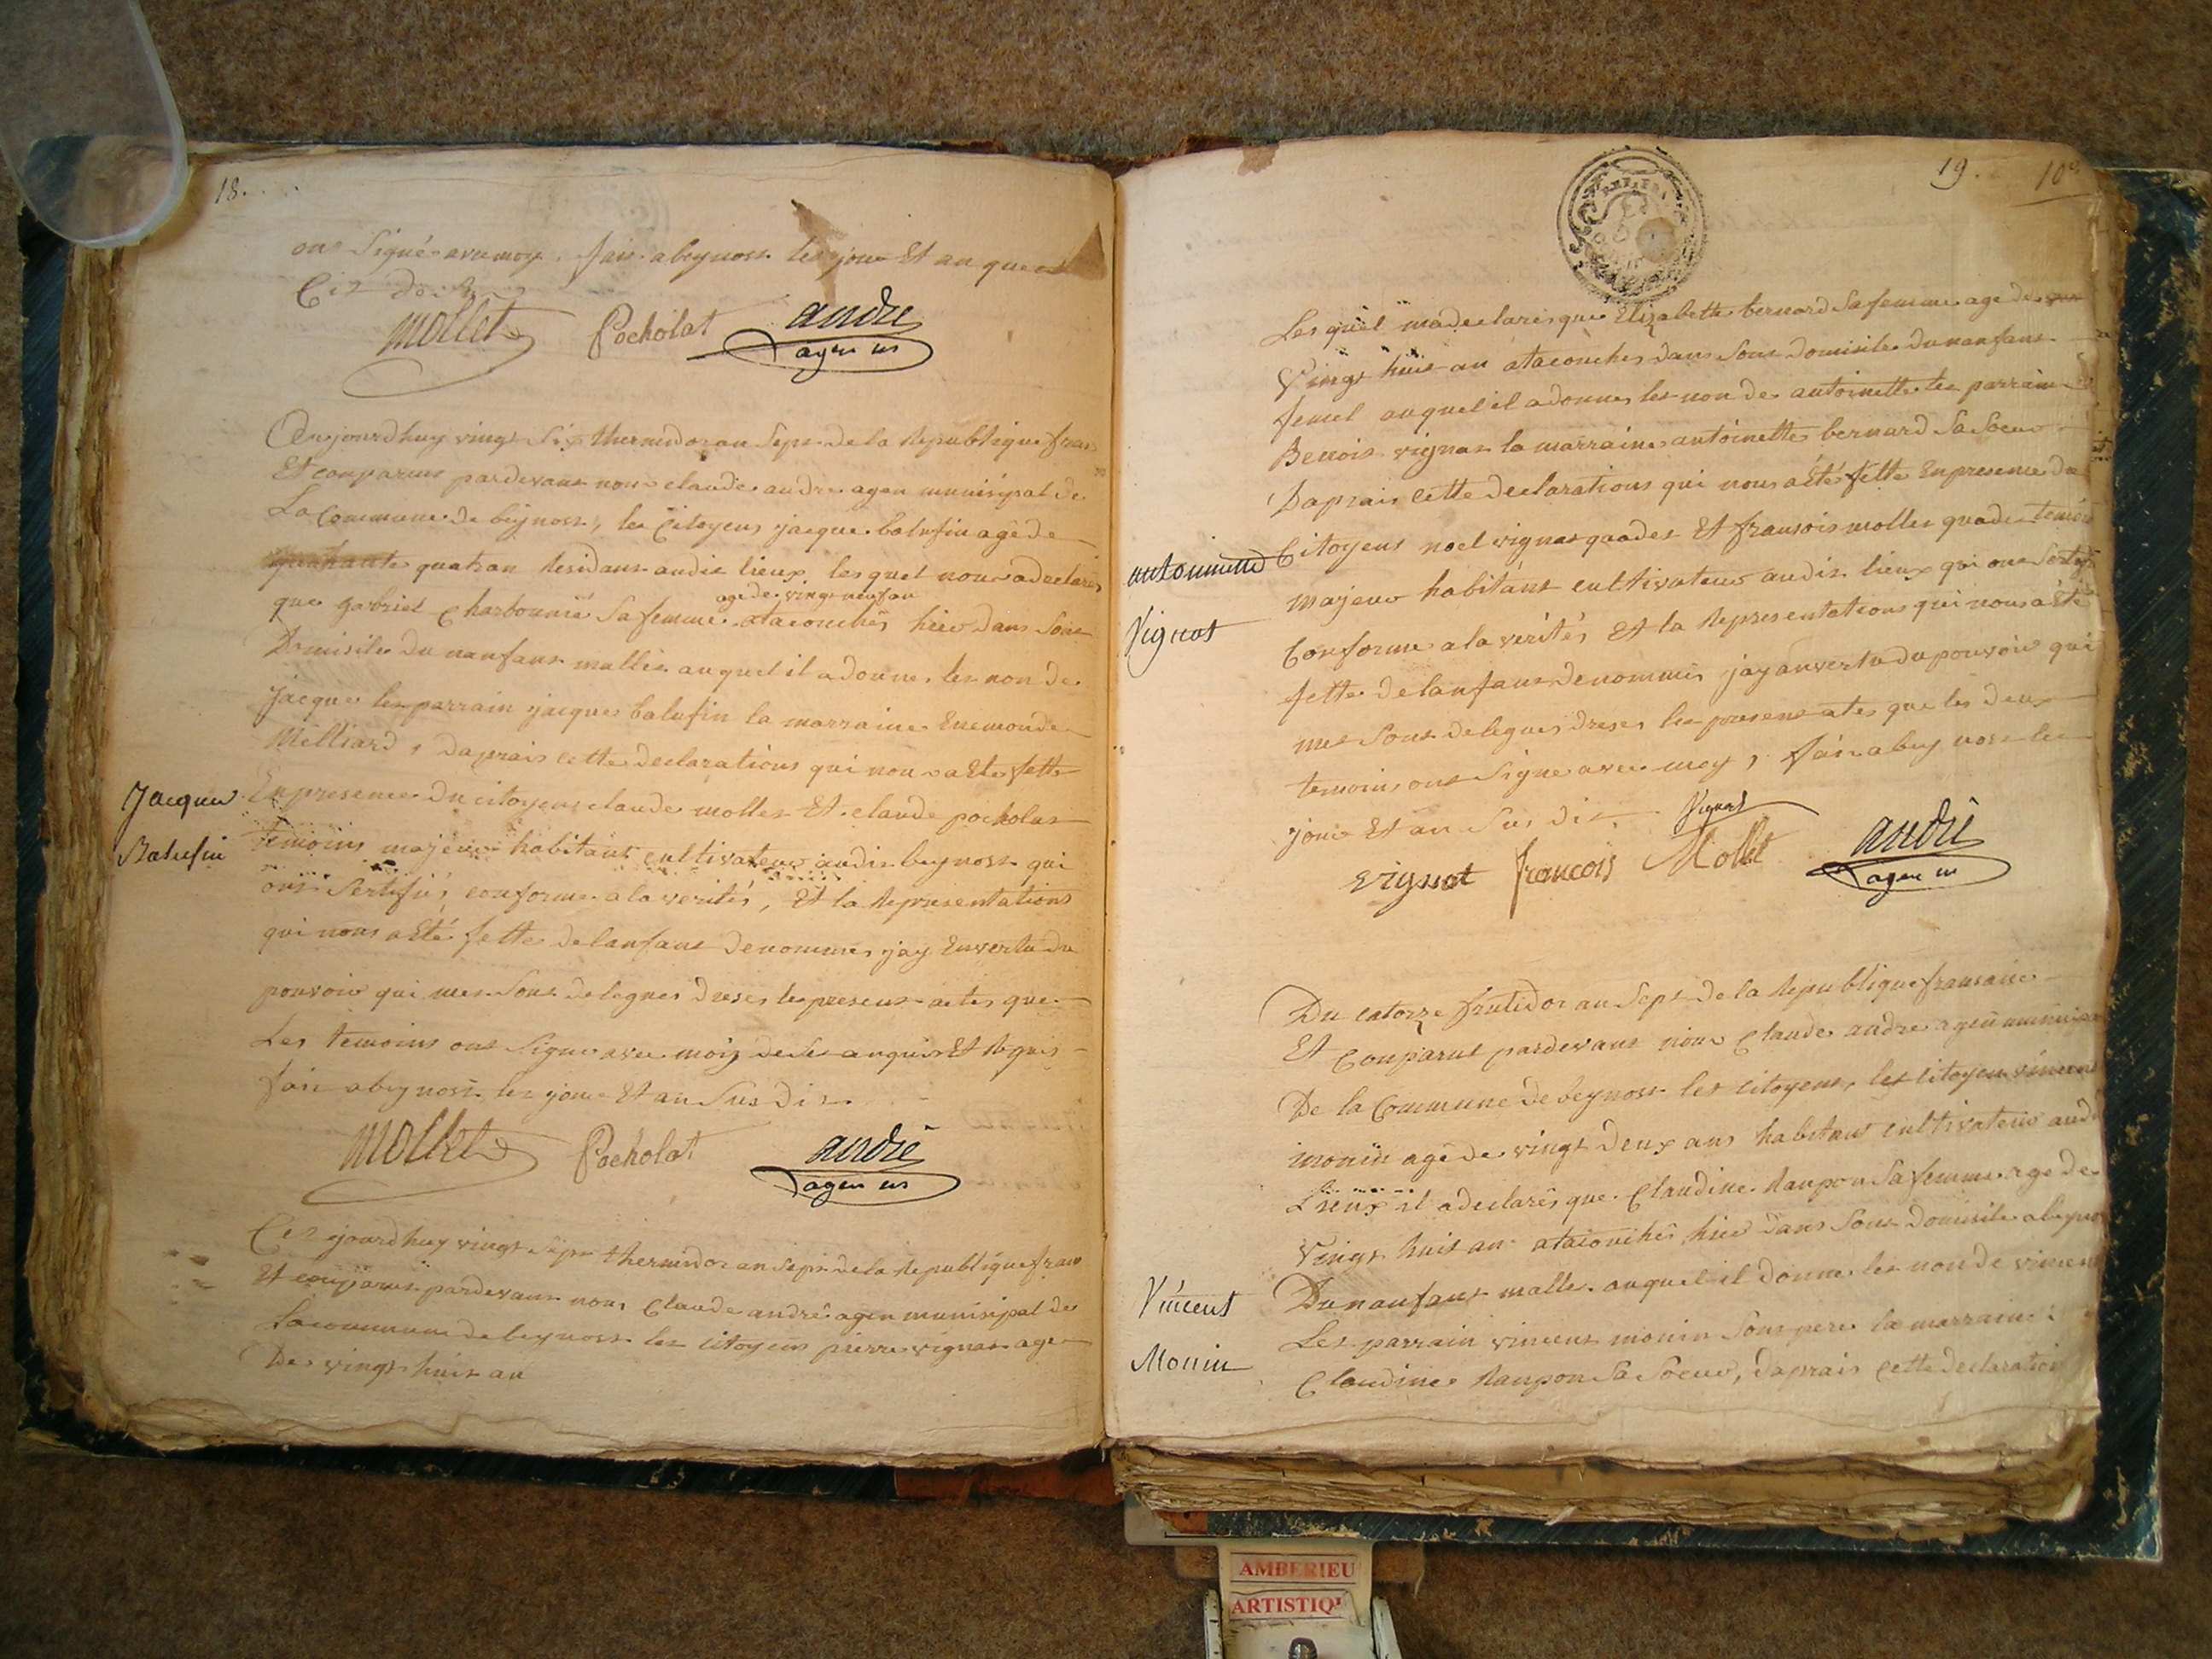 18.
ont Signé avec moy. fait a beynost les jour Et an que
Cit de
mollet Pocholat andre
agen m
Aujourdhuy vingt Six thermidor an Sept de la Republique frans
Et conparut pardevant nous claude andre agen munisipal de
La Commune de beynost, les Citoyens jacque batufin agé de
quatran Residant audit lieux, les quel nous a declarés
age de vingt neuf an
que gabriel Charbonnié Sa femme atacouchés hier dans Sont
Domisile du nanfant malle auquel il adonnes les non de
jacque les parrain jacques batufin la marraine Enemonde
Milliard, daprais cette declarations qui nous a Ete fette
Jacque
Batufin
En presence du citoyens claude mollet Et claude pocholat
temoins majeur habitant cultivateur audit beynost qui
ont Sertifiés conforme a la verités, Et la Representations
qui nous a Eté fette de lanfant denommés jay Envertu du
pouvoir qui mes Sont delegues dreses les present actes que
Les temoins ont Signe avec moiy de Se anquis Et Requis
fait a beynost les jour Et an Sus dit
mollet Pocholat andré
agen m
Cet jourdhuy vingt Sept thermidor an Sept de la Republique frans
Et conparut pardevant nous Claude andré agen munisipal de
La commune de beynost les Citoyens pierre vignat age
De vingt huit an
19. 10e
Les quel ma declares que Elizabette bernard Sa femme age de
Vingt huit an atacouches dans Sont domisile dunanfant
femel auquel il adonnes les non de antoinette les parrain
Benoit vignat la marraine antoinette bernard Sa Soeur
Daprais cette declarations qui nous a Eté fette En presence du
antoinette
Vignat
Citoyens noel vignat Et fransois mollet temoins
majeur habitant cultivateur audit lieux qui ont Sertifi
Conforme a la verités Et la Representations qui nous a Eté
fette de lanfant denommés jay anvertu du pouvoir qui
mes Sont delegues dreses les present actes que les deux
temoins ont Signe avec moy, fait a beynost les
jour Et an Sus dit
Vignat
vignat francois Mollet andré
agen m
Du catorze frutidor an Sept de la Republique fransaise
Et Conparut pardevant nous Claude andre agen munisipa
De la Commune de beynost les citoyens, les citoyen vincent
monin age de vingt deux ans habitant cultivateur aud
Lieux il a declarés que Claudine Raupon Sa femme age de
Vingt huit an atacouchés hier dans Sont domisile a beynos
Vincent
Monin
Dunanfant malle auquel il donne les non de vincent
Les parrain vincent monin Sont pere la marraine
Claudine Raupon Sa Soeur, daprais cette declaration
AMBERIEU
ARTISTIQU